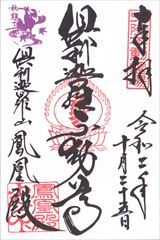 奉拝
令和二年
十月二十五日
倶利迦羅不動尊
倶利迦羅山
鳳凰殿